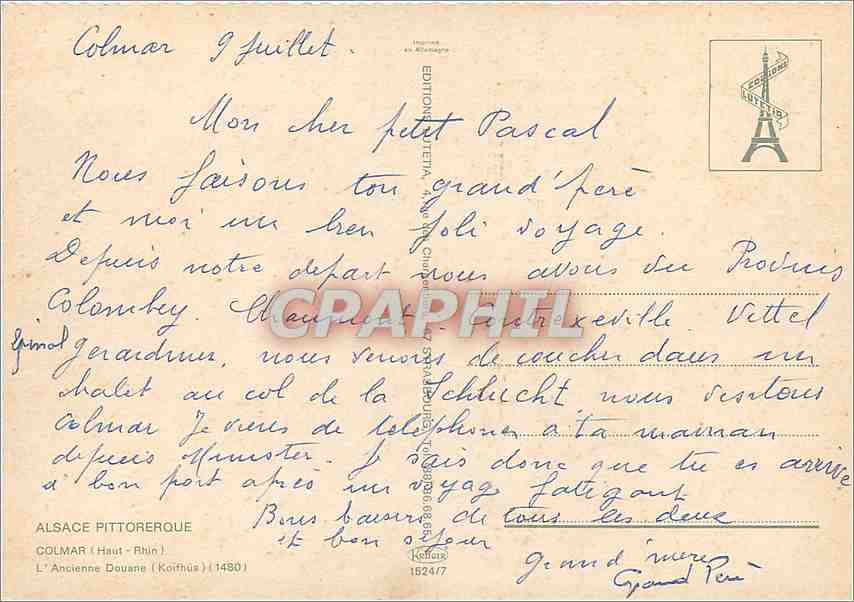 Colmar 9 Juillet.
Imprimé
en Allemagne
EDITIONS LUTETIA
Mon cher petit Pascal
Nous faisons ton grand'père
et moi un bien joli voyage.
Depuis notre depart nous avons vu Provins
Colombey. Chaumont. Contrexeville. Vittel
Epinal Gerardmer, nous venons de coucher dans un
chalet au col de la Schlucht, nous visitons
Colmar Je viens de telephoner à ta maman
depuis Munster. Je sais donc que tu es arrivé
à bon port après un voyage fatigant
Bons baisers de tous les deux
et bon sejour
grand'mère
Grand Père
EDITIONS LUTETIA, 4, Rue des Charpentiers, 67 STRASBOURG, Tél. (88) 36.68.65
ALSACE PITTORERQUE
COLMAR (Haut-Rhin)
L'Ancienne Douane (Koifhüs) (1480)
Krüger
1524/7
CPAPHIL